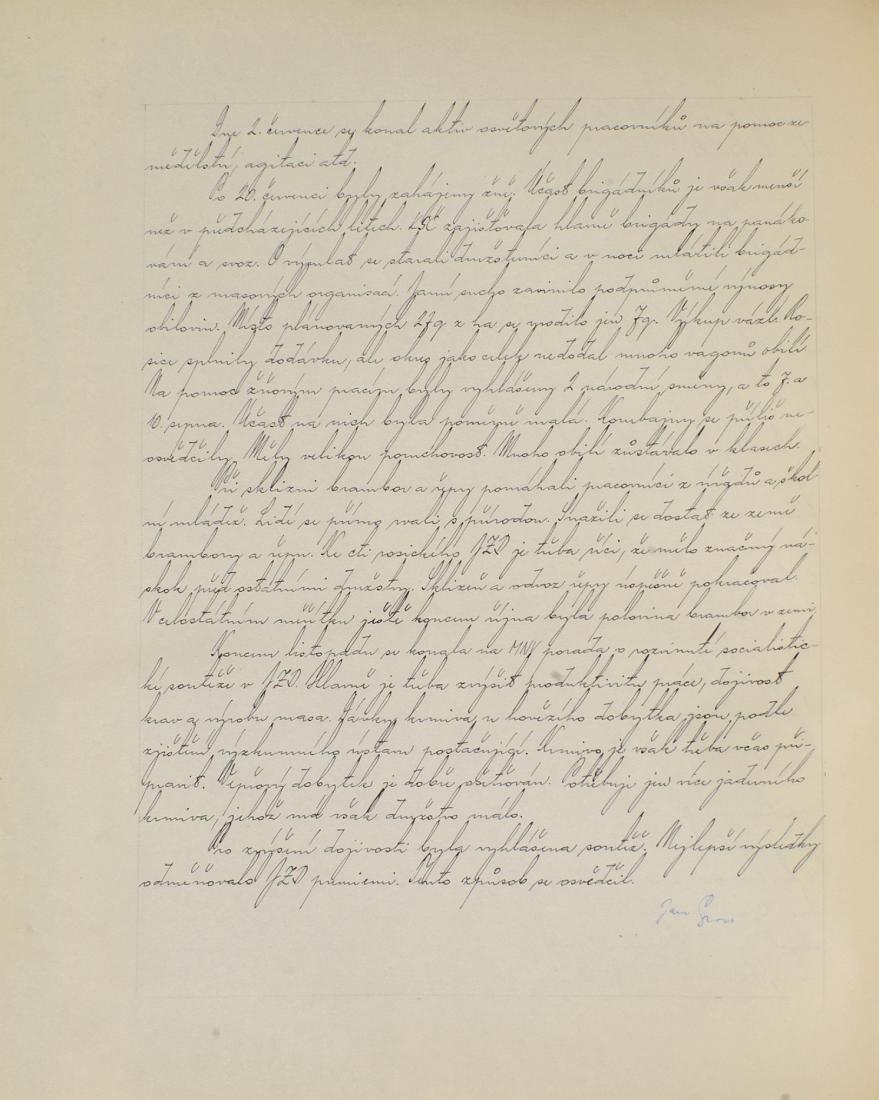 Dne 2. července se konal aktiv osvětových pracovníků na pomoc ze-
mědělství, agitaci atd.
Po 20. červenci byly zahájeny žně. Účast brigádníků je však menší
než v předcházejících létech. ČSČK zajišťovala hlavně brigády na panáko-
vání a svoz. O výmlat se starali družstevníci a v noci mlátili brigád-
níci z masových organisací. Jarní sucho zavinilo podprůměrné výnosy
obilovin. Místo plánovaných 27q z ha se urodilo jen 7q. Výkup vázl. Ro-
sice splnily dodávku, ale okres jako celek nedodal mnoho vagonů obilí.
Na pomoc žňovým pracím byly vyhlášeny 2 národní směny, a to 7. a
10. srpna. Účast na nich byla poměrně malá. Kombajny se příliš ne-
osvědčily. Měly velikou poruchovost. Mnoho obilí zůstávalo v klasech.
Při sklizni brambor a řepy pomáhali pracovníci z úřadů a škol-
ní mládež. Lidé se přímo rvali s přírodou. Snažili se dostat ze země
brambory a řepu. Ke cti rosického JZD je třeba říci, že mělo značný ná-
skok před ostatními družstvy. Sklizeň a odvoz řepy úspěšně pokračoval.
V celostátním měřítku ještě koncem října byla polovina brambor v zemi.
Koncem listopadu se konala na MNV porada o rozvinutí socialistic-
ké soutěže v JZD. Hlavně je třeba zvýšit produktivitu práce, dojivost
krav a výrobu masa. Dávky krmiva u hovězího dobytka jsou podle
zjištění výzkumného ústavu postačující. Krmivo je však třeba včas při-
pravit. Vepřový dobytek je dobře ošetřován. Potřebuje jen více jaderného
krmiva, jehož má však družstvo málo.
Pro zvýšení dojivosti byla vyhlášena soutěž. Nejlepší výsledky
odměňovalo JZD prémiemi. Tento způsob se osvědčil.
Jan